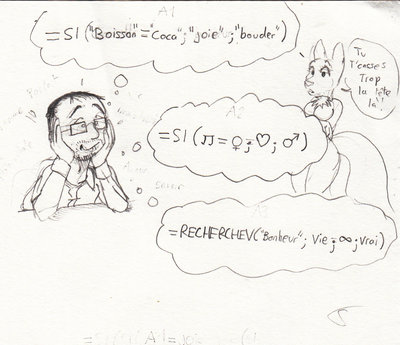 A1
=SI("Boisson"="Coca";"joie";"bouder")
Tu
T'casses
Trop
la tête
là!
A2
=SI(♫=♀;♡;♂)
A3
=RECHERCHEV("Bonheur";Vie;∞;vrai)